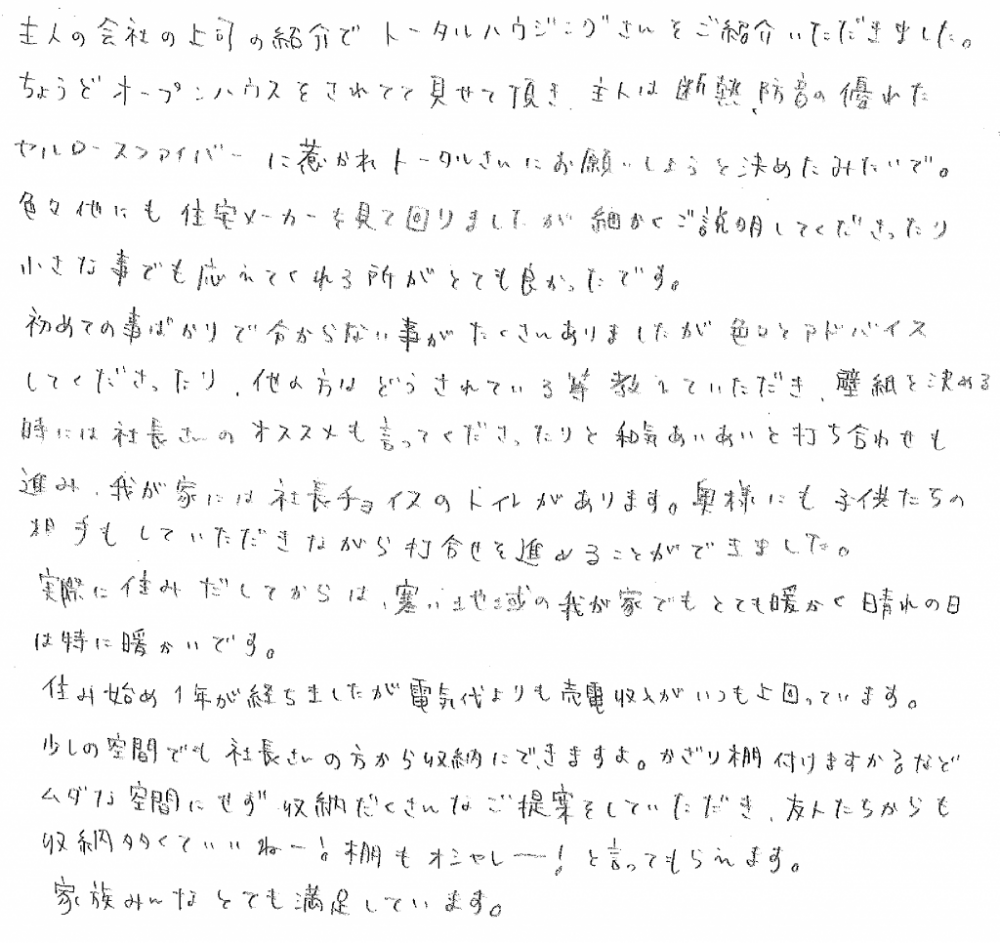 主人の会社の上司の紹介で トータルハウジングさんをご紹介いただきました。
ちょうどオープンハウスをされてて見せて頂き、主人は断熱、防音の優れた
セルロースファイバーに惹かれトータルさんにお願いしようと決めたみたいで。
色々他にも住宅メーカーを見て回りましたが細かくご説明してくださったり
小さな事でも応えてくれる所がとても良かったです。
初めての事ばかりで分からない事がたくさんありましたが色々とアドバイス
してくださったり、他の方はどうされている等教えていただき、壁紙を決める
時には社長さんのオススメも言ってくださったりと和気あいあいと打ち合わせも
進み、我が家には社長チョイスのトイレがあります。奥様にも子供たちの
相手もしていただきながら打合せを進めることができました。
実際に住みだしてからは、寒い地域の我が家でもとても暖かく晴れの日
は特に暖かいです。
住み始め1年が経ちましたが電気代よりも売電収入がいつも上回っています。
少しの空間でも社長さんの方から収納にできますよ。かざり棚付けますかるなど
ムダな空間にせず収納だくさんなご提案をしていただき、友人たちからも
収納多くていいねー!棚もオシャレー!と言ってもらえます。
家族みんなとても満足しています。